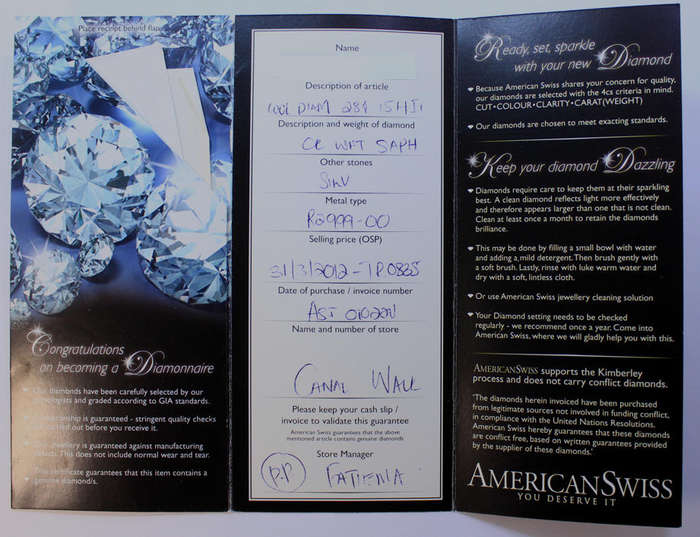 Place receipt behind flap
Congratulations
on becoming a Diamonnaire
Our diamonds have been carefully selected by our
and graded according to GIA standards.
is guaranteed - stringent quality checks
out before you receive it.
is guaranteed against manufacturing
This does not include normal wear and tear.
certificate guarantees that this item contains a
genuine diamond/s.
Name
Description of article
DIAM 284 15HI1
Description and weight of diamond
CR WHT SAPH
Other stones
SILV
Metal type
R2999-00
Selling price (OSP)
31/3/2012-TP0825
Date of purchase / invoice number
AST
Name and number of store
CANAL WALK
Please keep your cash slip /
invoice to validate this guarantee
American Swiss guarantees that the above
mentioned article contains genuine diamonds
Store Manager
P.P FATIEMA
Ready, set, sparkle
with your new Diamond
Because American Swiss shares your concern for quality,
our diamonds are selected with the 4cs criteria in mind.
CUT•COLOUR•CLARITY•CARAT(WEIGHT)
Our diamonds are chosen to meet exacting standards.
Keep your diamond Dazzling
Diamonds require care to keep them at their sparkling
best. A clean diamond reflects light more effectively
and therefore appears larger than one that is not clean.
Clean at least once a month to retain the diamonds
brilliance.
This may be done by filling a small bowl with water
and adding a mild detergent. Then brush gently with
a soft brush. Lastly, rinse with luke warm water and
dry with a soft, lintless cloth.
Or use American Swiss jewellery cleaning solution
Your Diamond setting needs to be checked
regularly - we recommend once a year. Come into
American Swiss, where we will gladly help you with this.
AMERICANSWISS supports the Kimberley
process and does not carry conflict diamonds.
'The diamonds herein invoiced have been purchased
from legitimate sources not involved in funding conflict,
in compliance with the United Nations Resolutions.
American Swiss hereby guarantees that these diamonds
are conflict free, based on written guarantees provided
by the supplier of these diamonds.'
AMERICANSWISS
YOU DESERVE IT